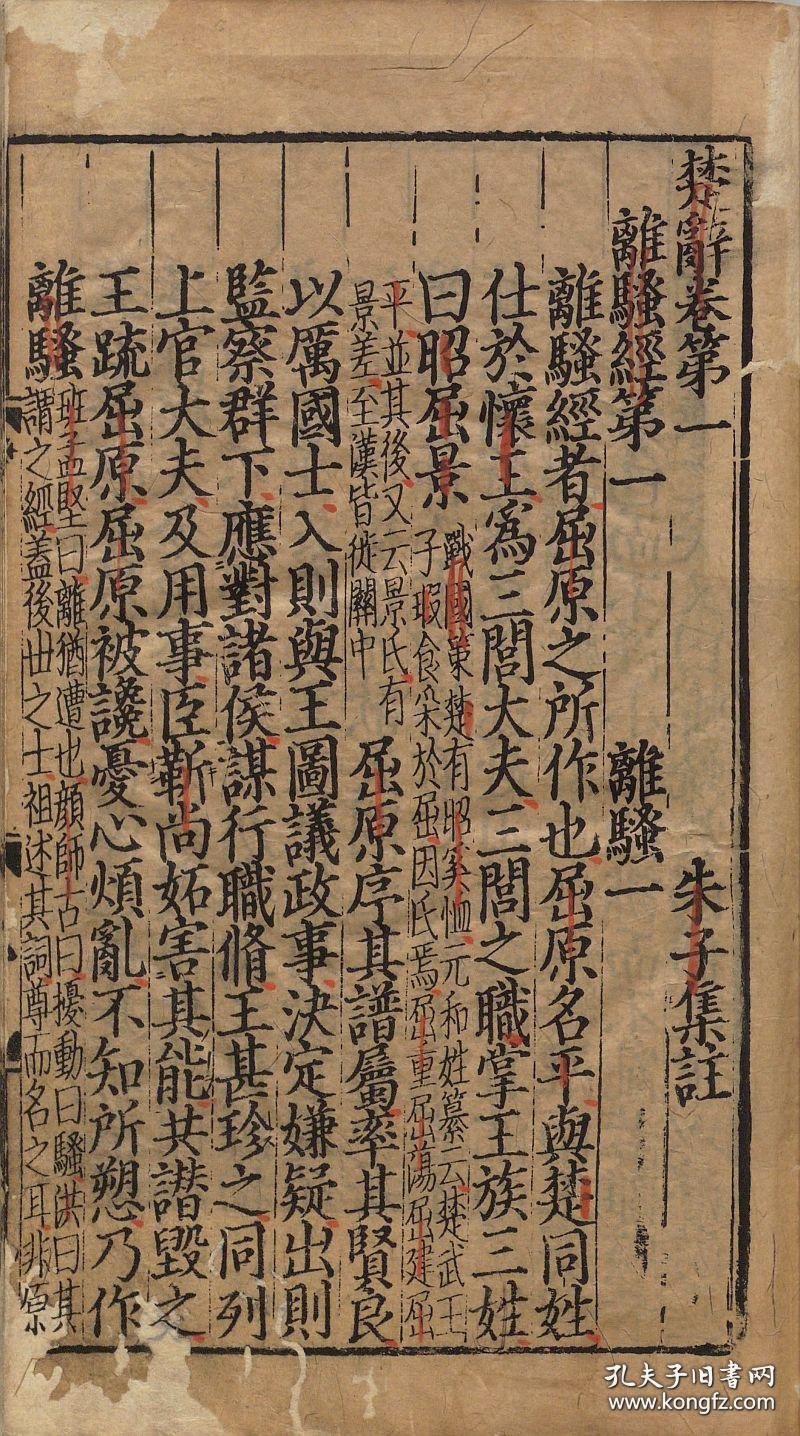 楚辭卷第一　朱子集註
離騷經第一　離騷一
離騷經者屈原之所作也屈原名平與楚同姓
仕於懷王爲三閭大夫三閭之職掌王族三姓
曰昭屈景
戰國策楚有昭奚恤元和姓纂云楚武王
子瑕食采於屈因氏焉屈重屈蕩屈建屈
平並其後又云景氏有
景差至漢皆徙關中
屈原序其譜屬率其賢良
以厲國士入則與王圖議政事決定嫌疑出則
監察群下應對諸侯謀行職脩王甚珍之同列
上官大夫及用事臣靳尚妬害其能共譖毀之
王疏屈原屈原被讒憂心煩亂不知所愬乃作
離騷
班孟堅曰離猶遭也顏師古曰擾動曰騷洪曰其
謂之經蓋後世之士祖述其詞尊而名之耳非原
孔夫子旧书网
www.kongfz.com